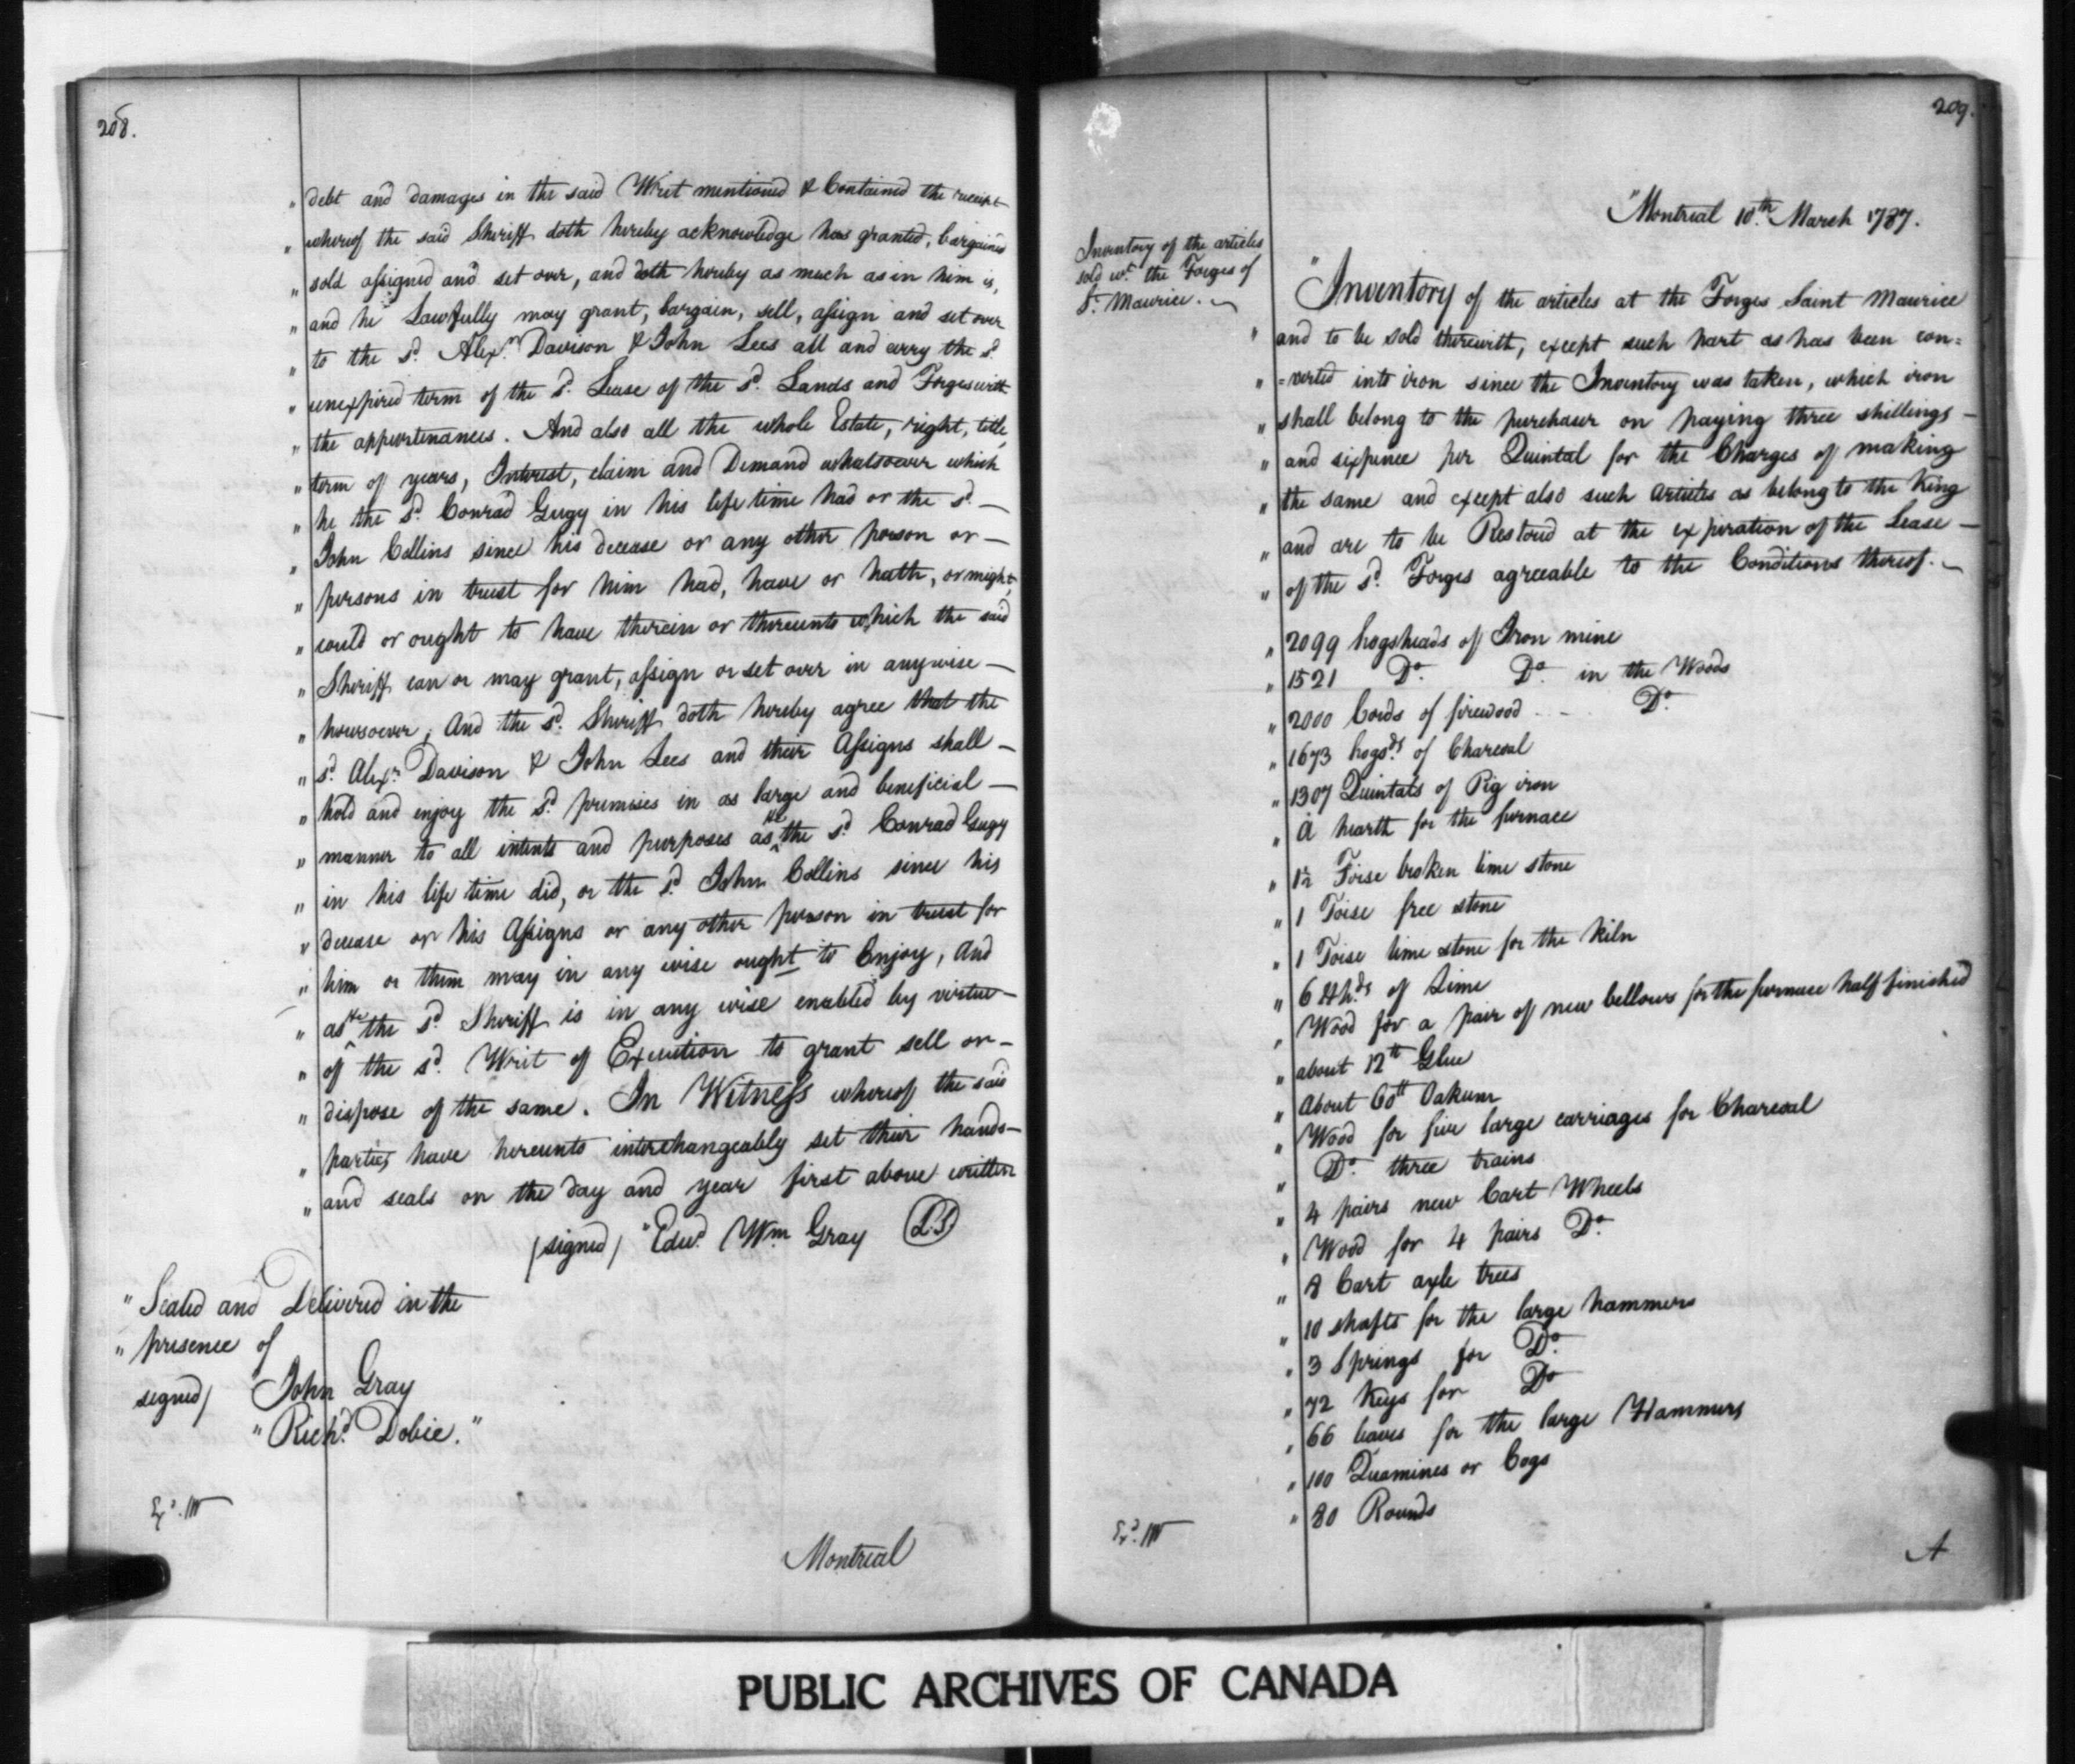 208.
" debt and damages in the said Writ mentioned & Contained the receipt
" whereof the said Sheriff doth hereby acknowledge has granted, bargained
" sold assigned and set over, and doth hereby as much as in him is,
" and he Lawfully may grant, bargain, sell, assign and set over
" to the sd. Alexr. Davison & John Lees all and every the sd.
" unexpired term of the sd. Lease of the sd. Lands and Forges with
" the appurtenances. And also all the whole Estate, right, title,
" term of years, Interest, claim and Demand whatsoever which
" he the sd. Conrad Gugy in his life time had or the sd. —
" John Collins since his decease or any other person or —
" persons in trust for him had, have or hath, or might,
" could or ought to have therein or thereunto which the said
" Sheriff can or may grant, assign or set over in anywise —
" howsoever; And the sd. Sheriff doth hereby agree that the
" sd. Alexr. Davison & John Lees and their Assigns shall —
" hold and enjoy the sd. premises in as large and beneficial —
" manner to all intents and purposes as he the sd. Conrad Gugy
" in his life time did, or the sd. John Collins since his
" decease or his Assigns or any other person in trust for
" him or them may in any wise ought to Enjoy, And
" as he the sd. Sheriff is in any wise enabled by virtue —
" of the sd. Writ of Execution to grant sell or —
" dispose of the same. In Witness whereof the said
" parties have hereunto interchangeably set their hands —
" and seals on the day and year first above written
/signed/ "Edwd. Wm. Gray (L.S)
" Sealed and Delivered in the
" presence of
signed/ John Gray
" Richd. Dobie."
Exd. W
Montreal
209.
"Montreal 10th. March 1787.
Inventory of the articles
sold wt. the Forges of
St. Maurice.
" Inventory of the articles at the Forges Saint Maurice
" and to be sold therewith, except such part as has been con=
" =verted into iron since the Inventory was taken, which iron
" shall belong to the purchaser on paying three shillings —
" and sixpence per Quintal for the Charges of making
" the same and except also such Articles as belong to the King
" and are to be Restored at the expiration of the Lease —
" of the sd. Forges agreeable to the Conditions thereof.
" 2099 hogsheads of Iron mine
" 1521 Do. Do. in the Woods
" 2000 Cords of firewood - - - Do.
" 1673 hogsds. of Charcoal
" 1307 Quintals of Pig iron
" A hearth for the furnace
" 1½ Toise broken lime stone
" 1 Toise free stone
" 1 Toise lime stone for the kiln
" 6 Hhds. of Lime
" Wood for a pair of new bellows for the furnace half finished
" about 12 lb Glue
" About 60 lb Oakum
" Wood for five large carriages for Charcoal
" Do. three trains
" 4 pairs new Cart Wheels
" Wood for 4 pairs Do.
" 8 Cart axle trees
" 10 shafts for the large hammers
" 3 Springs for Do.
" 72 Keys for Do
" 66 leaves for the large Hammers
" 100 Quamines or Cogs
" 80 Rounds
Exd. W
A
PUBLIC ARCHIVES OF CANADA